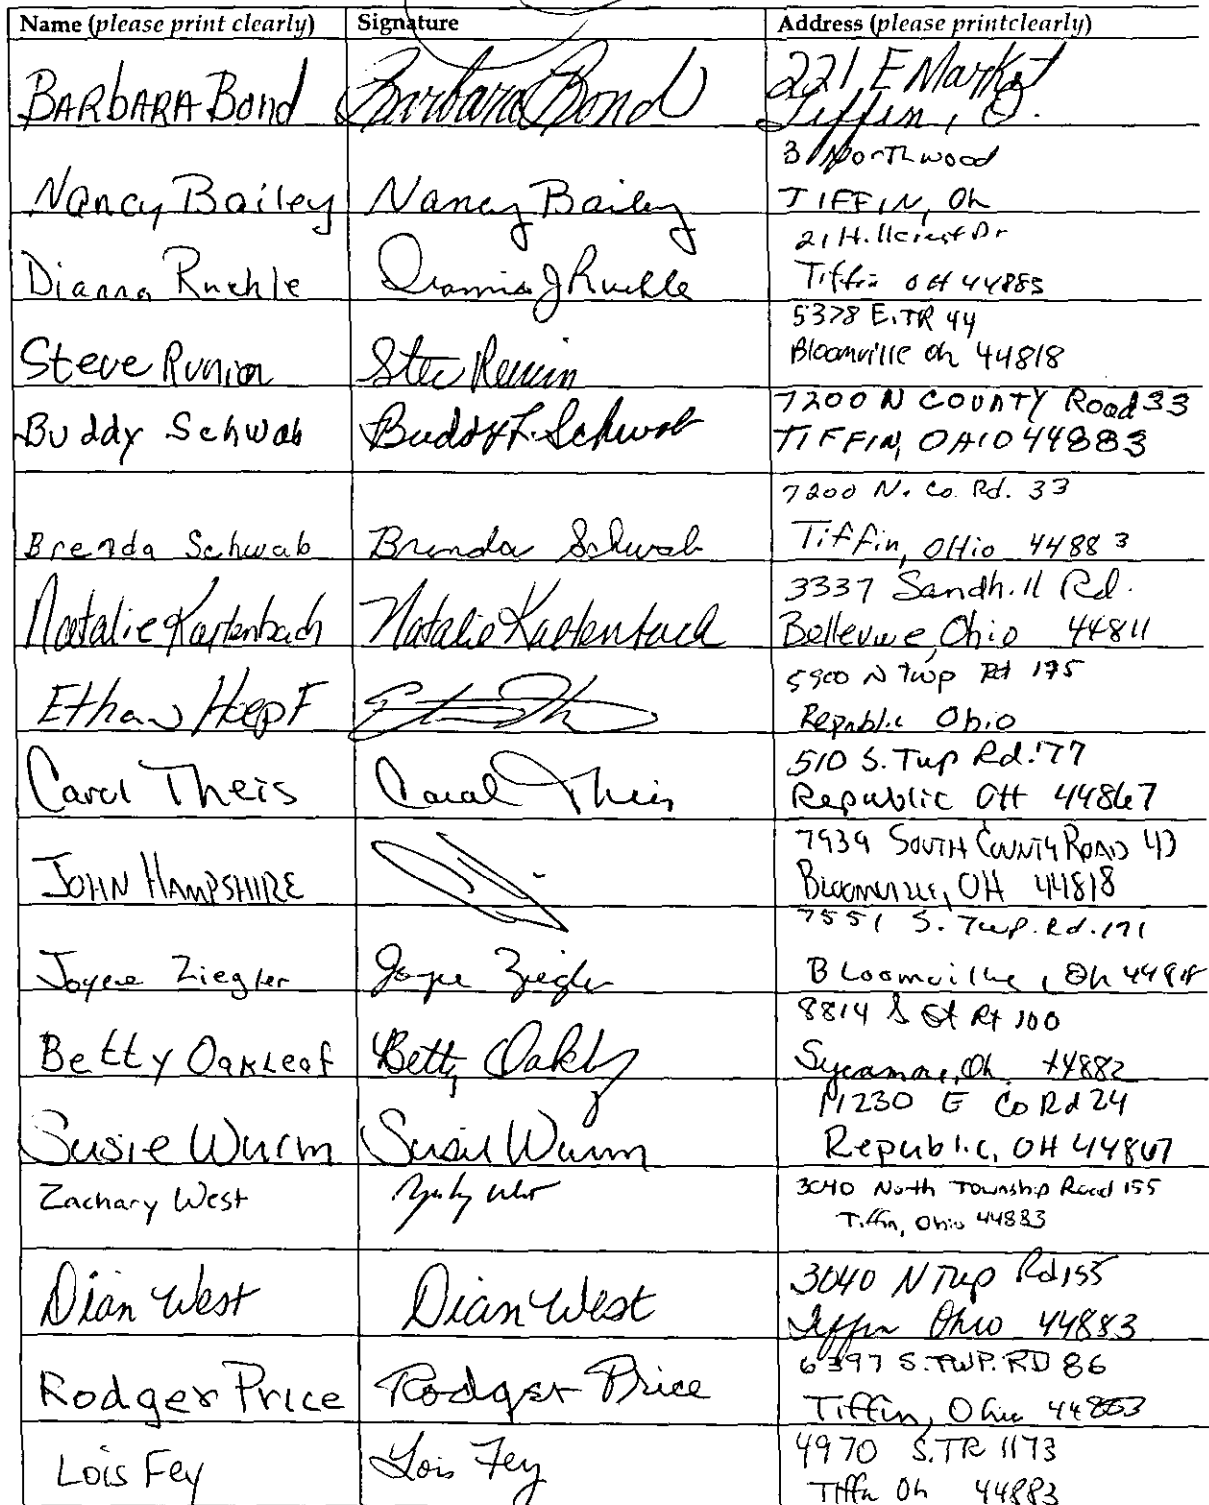 Name (please print clearly) Signature Address (please printclearly)
BARbARA Bond Barbara Bond 221 E Market
Tiffin, O.
Nancy Bailey Nancy Bailey 31 Northwood
TIFFIN, Oh
Dianna Ruehle Dianna J Ruehle 21 Hillcrest Dr
Tiffin OH 44883
Steve Runion 5378 E.TR 44
Bloomville Oh 44818
Buddy Schwab Buddy L. Schwab 7200 N COUNTY Road 33
TIFFIN, OHIO 44883
Brenda Schwab Brenda Schwab 7200 N. Co. Rd. 33
Tiffin, OHio 44883
Natalie Kaltenbach Natalie Kaltenbach 3337 Sandhill Rd.
Bellevue, Ohio 44811
Ethan Hoepf 5900 N Twp Rd 175
Republic Ohio
Carol Theis Carol Theis 510 S. Twp Rd. 177
Republic OH 44867
JOHN HAMPSHIRE 7939 SOUTH COUNTY ROAD 43
Bloomville, OH 44818
Joyce Ziegler Joyce Ziegler 7551 S. Twp. Rd. 171
Bloomville, Oh 44818
Betty Oakleaf Betty 8814 S St Rt 100
Sycamore, Oh. 44882
Susie Wurm Susie Wurm 11230 E Co Rd 24
Republic, OH 44867
Zachary West 3040 North Township Road 155
Tiffin, Ohio 44883
Dian West Dian West 3040 N Twp Rd 155
Tiffin Ohio 44883
Rodger Price Rodger Price 6397 S. TWP. RD 86
Tiffin, Ohio 44883
Lois Fey Lois Fey 4970 S. TR 1173
Tiffin Oh 44883